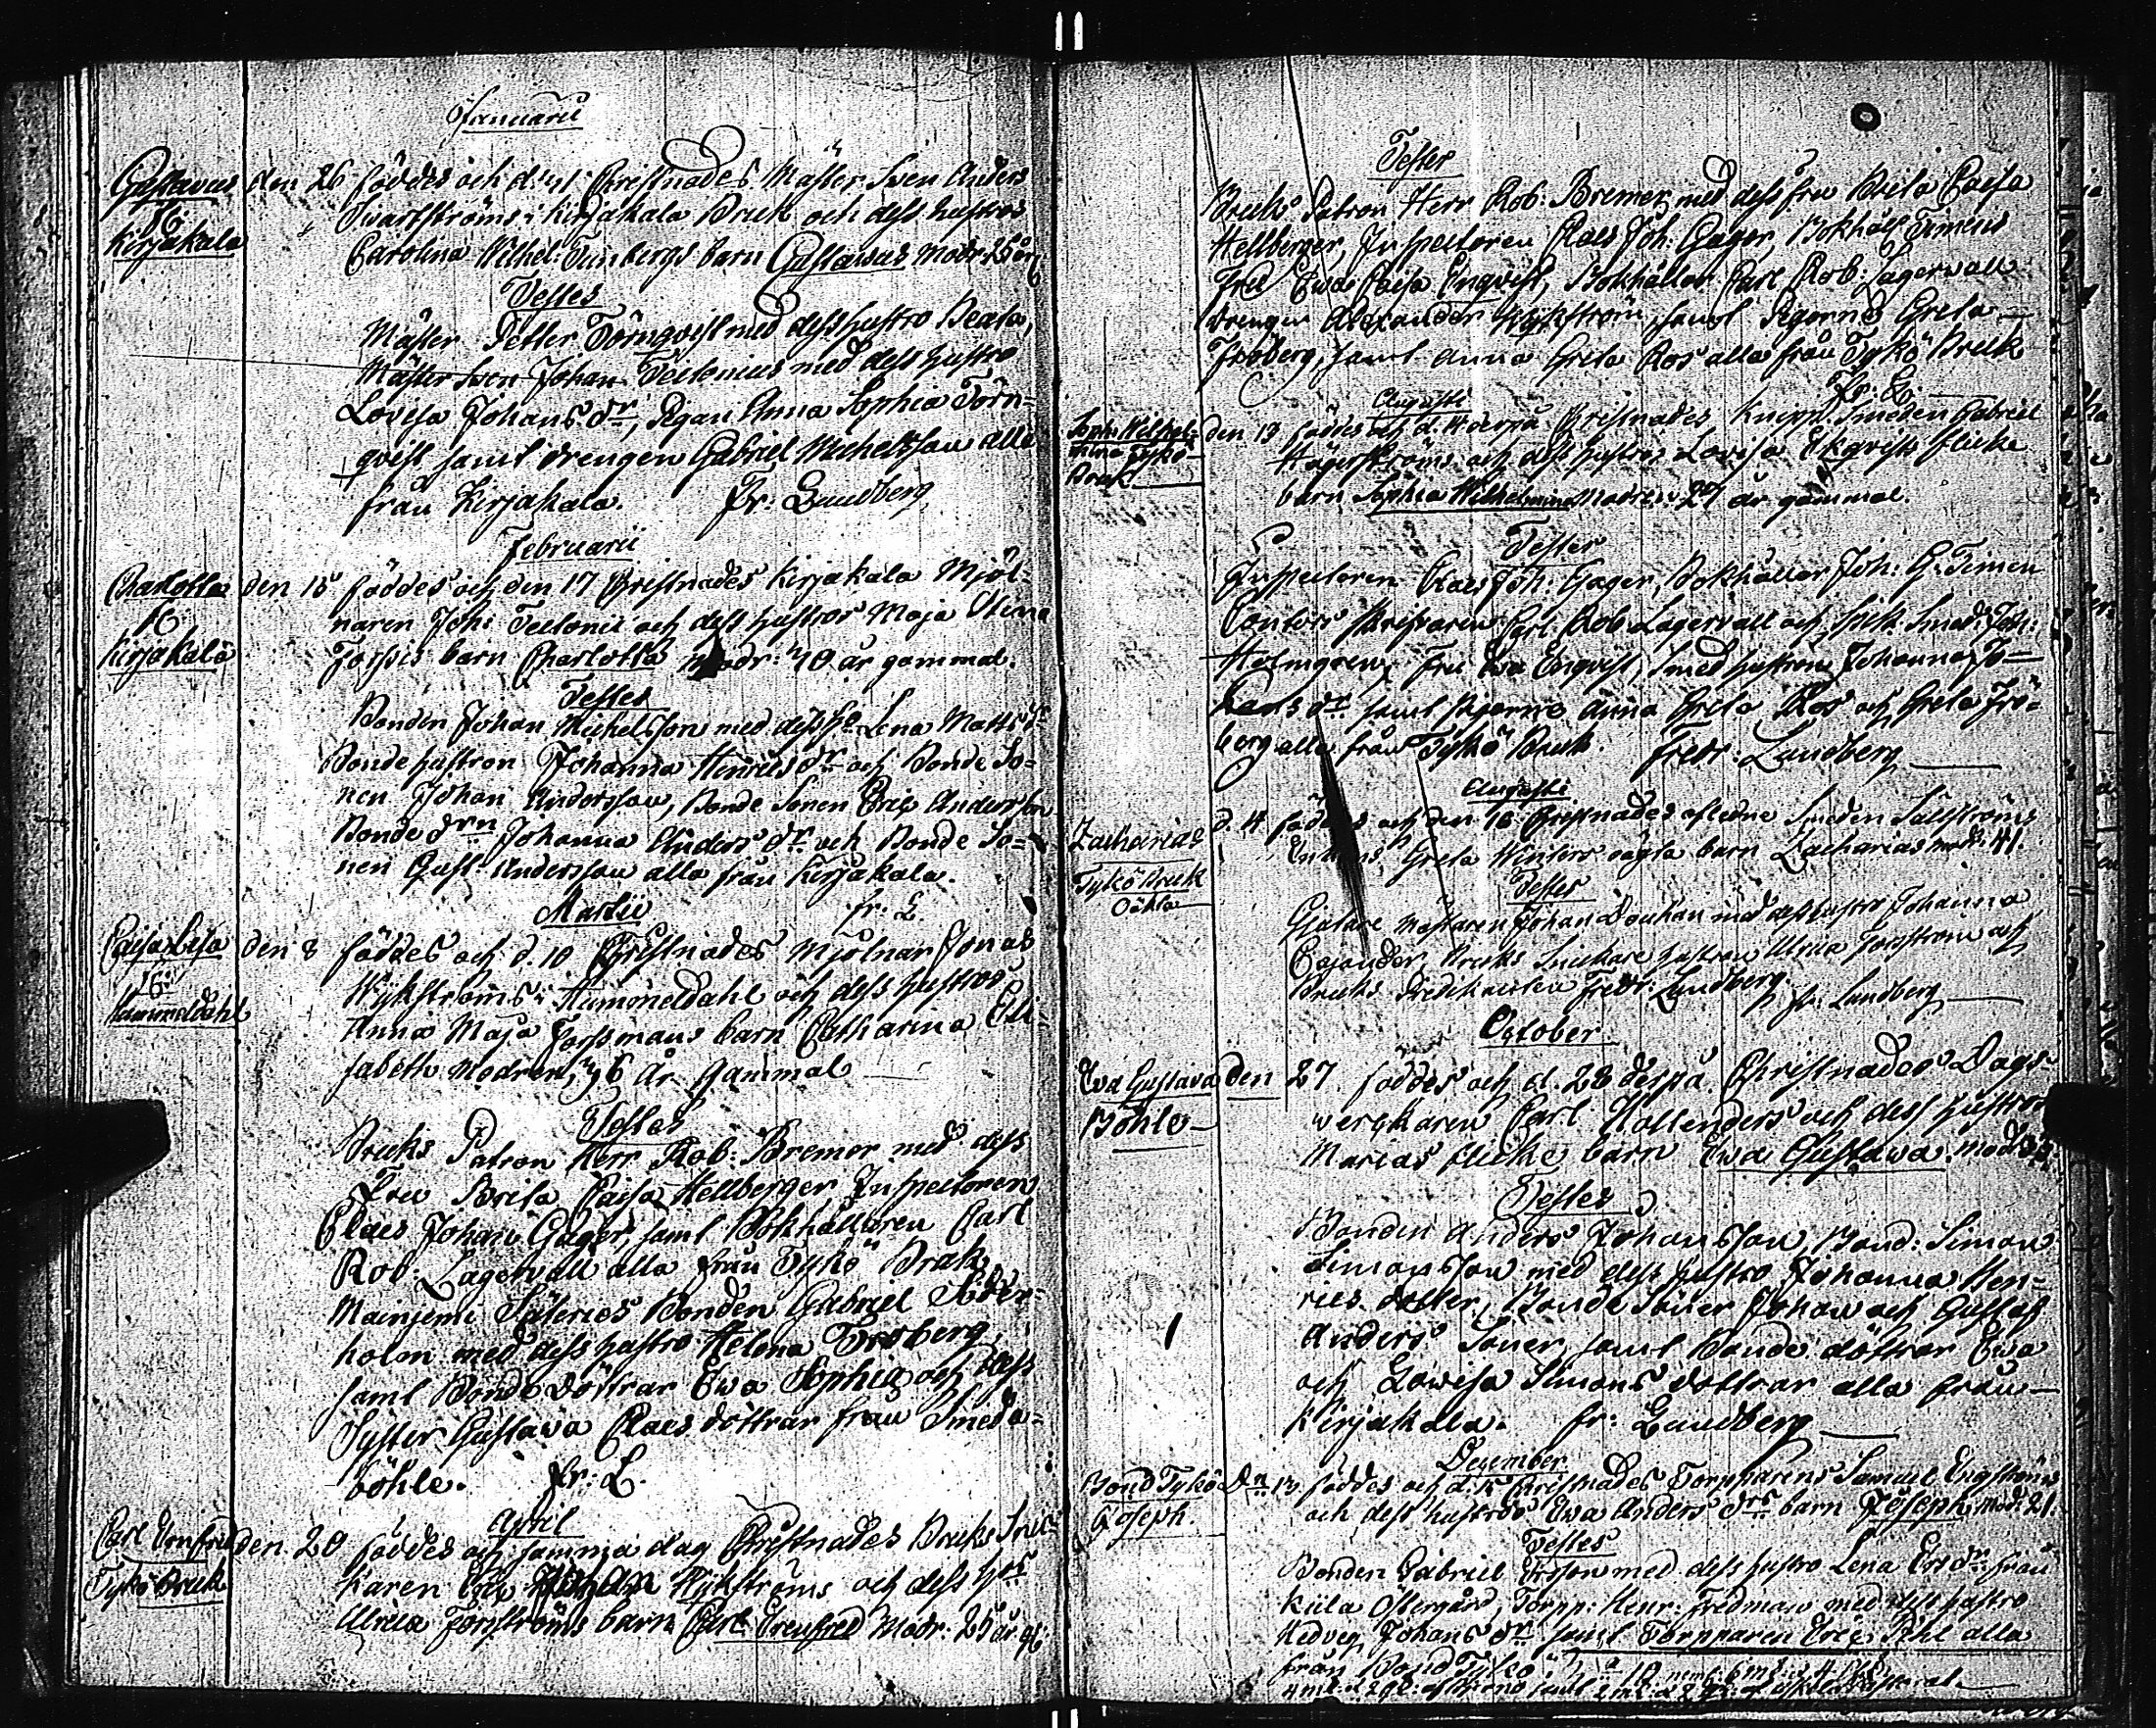 Januarii
Gustavus
Kirjakala
den 26 föddes och d. 31 Christnades Mäster Sven Anders
Svartströms i Kirjakala Bruk och dess hustros
Carolina Vilhel: Tunbergs barn Gustavus Modr: 26 år
Testes
Mäster Petter Törnqvist med dess hustro Beata,
Mäster Sven Johan Teetonius med dess hustro
Lovisa Johans dr, Pigan Anna Sophia Törn=
qvist samt drengen Gabriel Michelsson alle
från Kirjakala. Fr: Lundberg
Februarii
Charlotta
Kirjakala
den 15 föddes och den 17 Christnades Kirjakala Mjöl-
naren Joh: Teetonii och dess hustros Maja Stina
Forssis barn Charlotta Modr: 40 år gammal.
Testes
Bonden Johan Michelsson med dess Lena Matts dr
Bonde hustron Johanna Henrics dr och Bonde So=
nen Johan Andersson, Bonde Sonen Eric Andersson
Bonde drn Johanna Anders dr och Bonde So=
nen Gust. Andersson alla från Kirjakala.
Fr: L
Martii
Caisa Lisa
Hummeldahl
den 8 föddes och d. 10 Christnades Mjölnar Jonas
Wykströms i Hummeldahl och dess hustros
Anna Maja Forssmans barn Catharina Eli-
sabeth Modren, 36 År gammal
Testes
Bruks Patron Herr Rob: Bremer med dess
Fru Brita Caisa Hellberger Inspectoren
Claes Johan Gager, samt Bokhållaren Carl
Rob: Lagervall alla från Tykö Bruk,
Mainjemi Säteries Bonden Gabriel Söder-
holm med dess hustro Helena Froberg,
samt Bonde Döttrar Eva Sophia och dess
Syster Gustava Claes döttrar från Smeda-
böhle. Fr: L.
April
Carl Ernfred
Tykö Bruk
den 20 föddes och samma dag Christnades Bruks Snic-
karen Eric Johan Wykströms och dess
Ulrica Forsströms barn Carl Erenfred Modr: 25 år
Testes
Bruks Patron Herr Rob: Bremer med dess fru Brita Caisa
Hellberger, Inspectoren Claes Joh: Gager, Bokhåll Timens
Fru Eva Caisa Enqvist, Bokhållar Carl Rob: Lagervall
drengen Alexander Wykström, samt Pigorna Greta
Froberg, samt Anna Greta Ros alla från Tykö Bruk
Fr: L.
Augusti
Soph: Wilhel-
mina Tykö
Bruk
den 13 föddes och d. 14 derpå Christnades Knipp Smeden Gabriel
Hägerströms och dess hustros Lovisa Ekqvists flicke
barn Sophia Wilhelmina Modren 27 år gammal.
Testes
Inspectoren Claes Joh: Gager, Bokhållar Joh: G. Timen
Contors skrifvaren Carl Rob Lagervall och Spik Smed: Joh:
Holmgren, Fru Eva Enqvist, Smed hustron Johanna Jo-
hans dr samt pigorna Anna Greta Ros och Greta Frö-
berg alla från Tykö Bruk. Fredr: Lundberg
Augusti
Zacharias
Tykö Bruk
Oäkta
d. 4 föddes och den 16 Christnades afledne Smeden Sällströms
Enkas Greta Winters oägta barn Zacharias mod: 41.
Testes
Gjutare mästaren Johan Douhan med dess hustro Johanna
Cajander, Bruks Snickare hustron Ulrica Forsström och
Bruks Predikanten Fredr: Lundberg. Fr: Lundberg
October
Eva Gustava
Böhle
den 27 föddes och d. 28 derpå Christnades Dags-
verkaren Carl Hollenders och dess hustros
Marias flicke barn Eva Gustava. Mod:
Testes
Bonden Anders Johansson Bond: Simon
Simonsson med dess hustro Johanna Hen-
rics dotter, Bonde Söner Johan och Gustaf
Anders Söner, samt Bonde döttrar Eva
och Lovisa Simons döttrar alla från
Kirjakala. Fr: Lundberg
December
Bond Tykö
Joseph.
Dn 13 föddes och d. 15 Christnades Torpparens Samuel Engströms
och dess hustros Eva Anders drs barn Joseph, mod: 21.
Testes
Bonden Gabriel Ersson med dess hustro Lena Ers dr från
Kiila Östergård, Torpp: Henr: Fredman med dess hustro
Hedveg Johans dr samt Torpparen Eric Pihl alla
från Bond Tykö